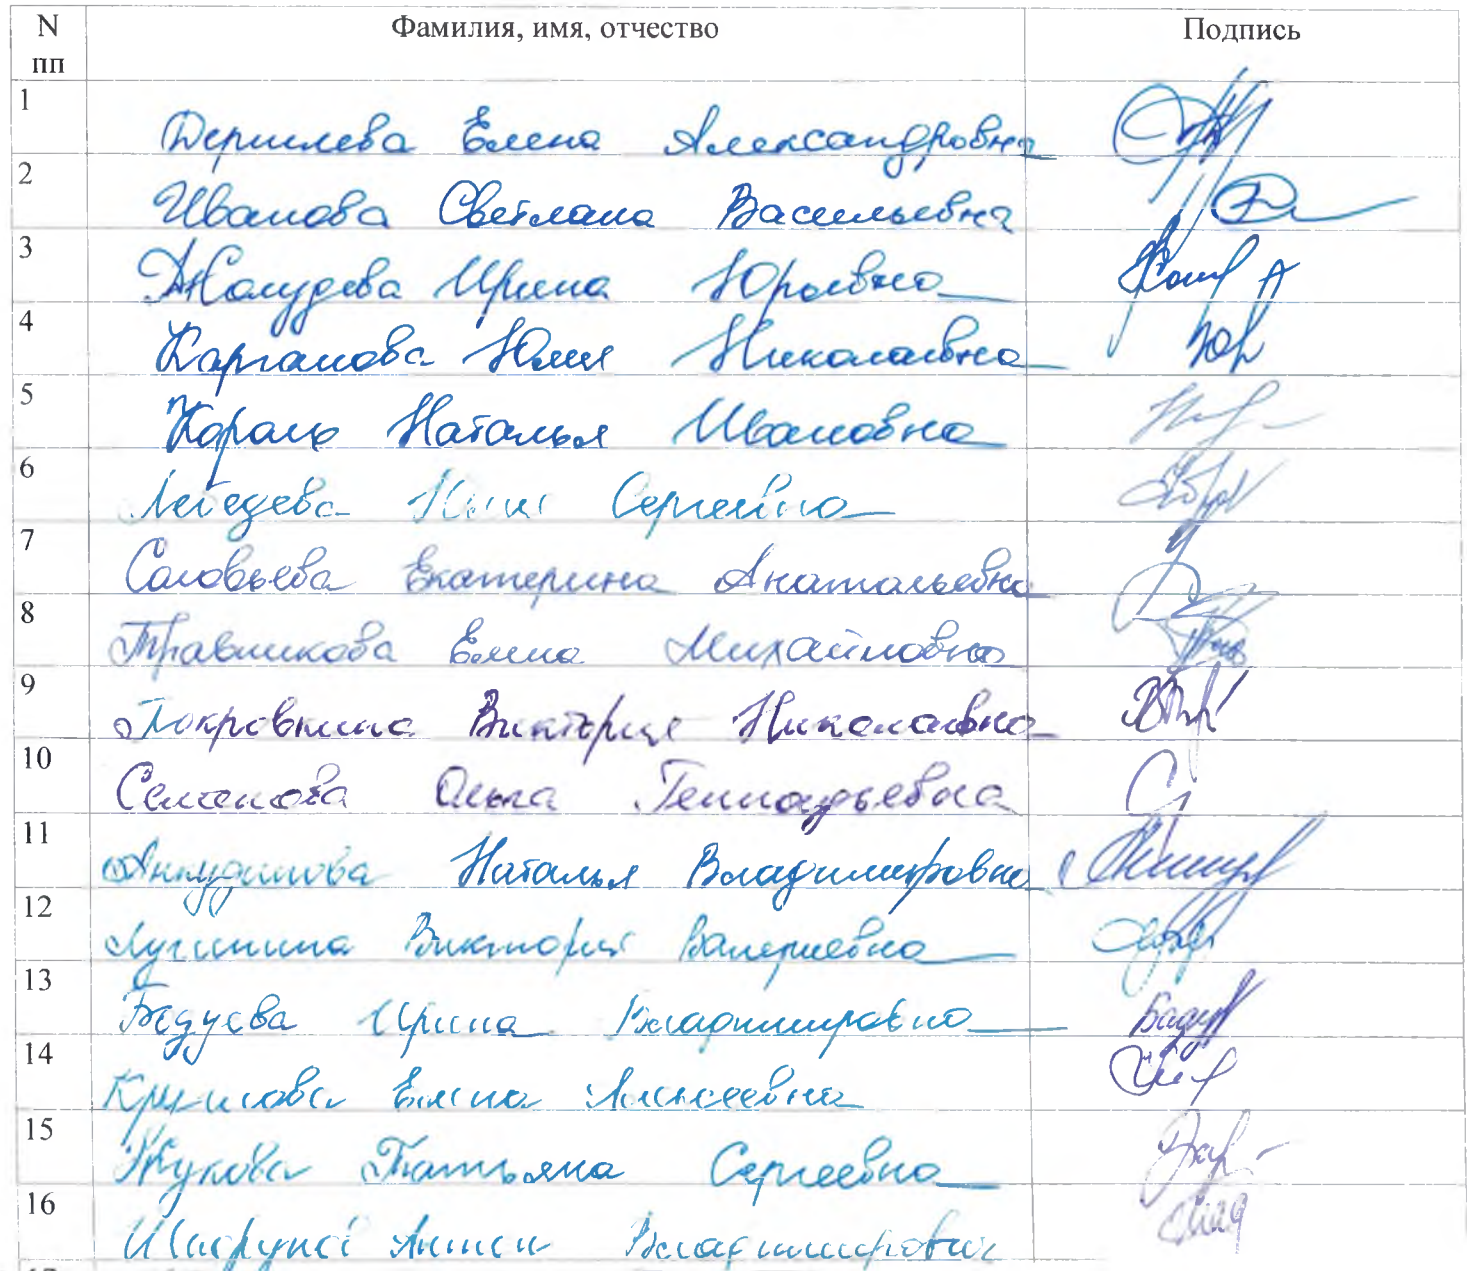 N пп Фамилия, имя, отчество Подпись
1 Елена Александровна
2 Иванова Светлана Васильевна
3 Жолудева Ирина Юрьевна
4 Карганова Юлия Николаевна
5 Король Наталья Ивановна
6 Лебедева Сергеевна
7 Соловьева Екатерина Анатольевна
8 Травникова Елена Михайловна
9 Виктория Николаевна
10 Семенова Ольга Геннадьевна
11 Анкудинова Наталья Владимировна
12 Лугинина Виктория Валериевна
13 Бадуева Ирина Владимировна
14 Крылова Елена Алексеевна
15 Жукова Татьяна Сергеевна
16 Антон Владимирович